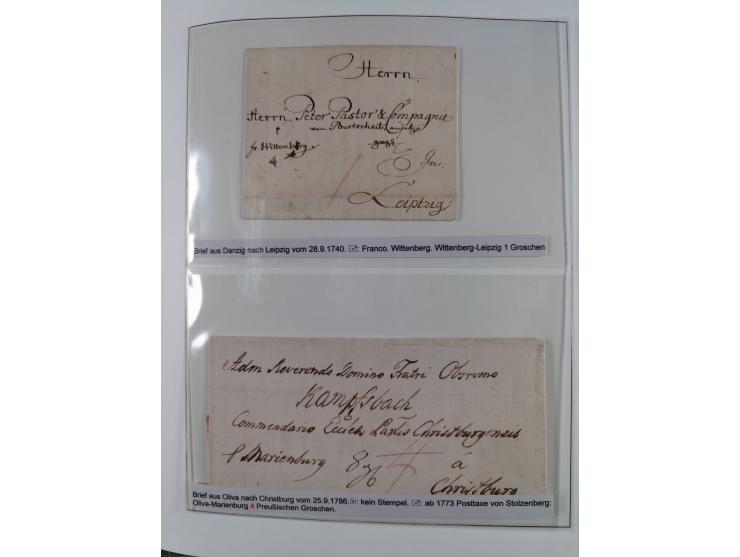 Herrn
Herrn Peter Pastor & Compagnie
von Burtscheit
fr Wittenberg
In
Leiptzig
Brief aus Danzig nach Leipzig vom 28.9.1740. ✉: Franco. Wittenberg. Wittenberg-Leipzig 1 Groschen
Adm Reverendo Domino Fratri Obsrvmo
Kampfsbach
Commendario Christburgensis
p Marienburg 4 á
Christburg
Brief aus Oliva nach Christburg vom 25.9.1786. ⊙: kein Stempel. ✉: ab 1773 Posttaxe von Stolzenberg:
Oliva-Marienburg 4 Preußischen Groschen.